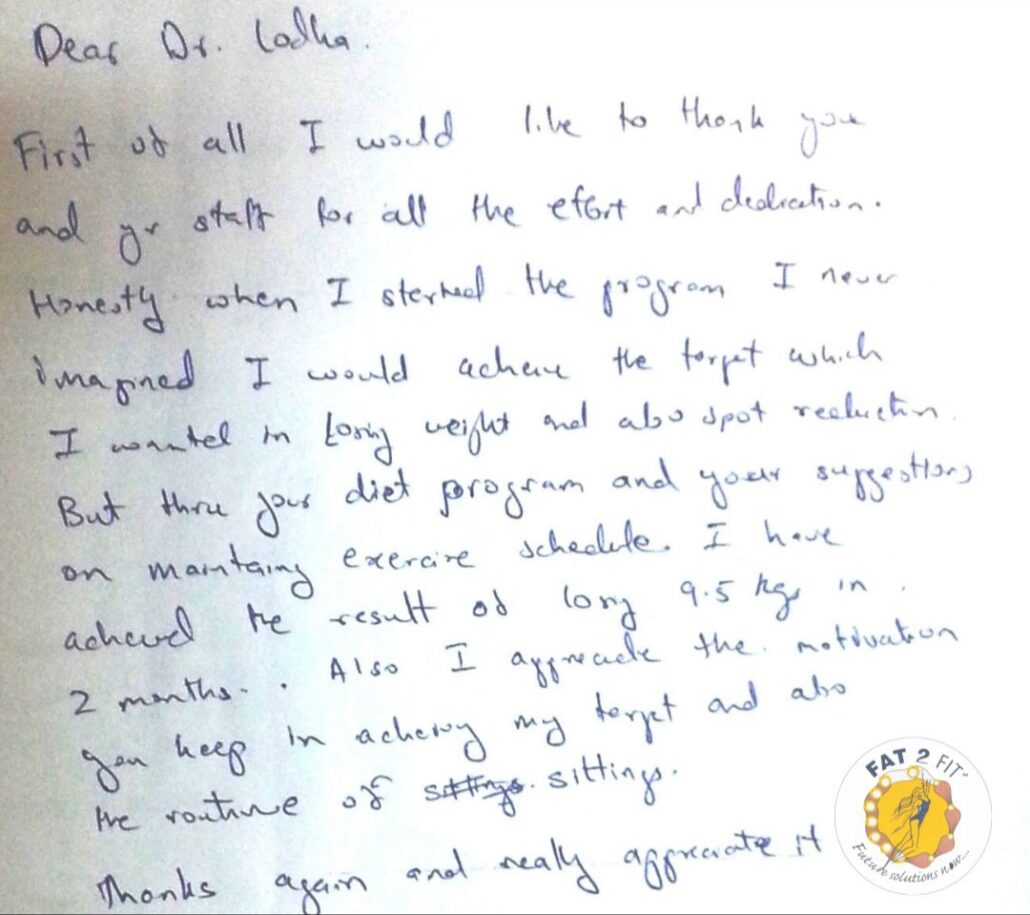 Dear Dr. Lodha.
First of all I would like to thank you
and yr staff for all the effort and dedication.
Honestly when I started the program I never
imagined I would acheive the target which
I wanted in losing weight and also spot reduction.
But thru your diet program and your suggestions
on maintaing exercise schedule. I have
acheived the result of losing 9.5 kgs in
2 months. . Also I appreciate the motivation
you keep in acheivg my target and also
the routine of sittings. sittings.
Thanks again and really appreciate it
FAT 2 FIT
Future solutions now...